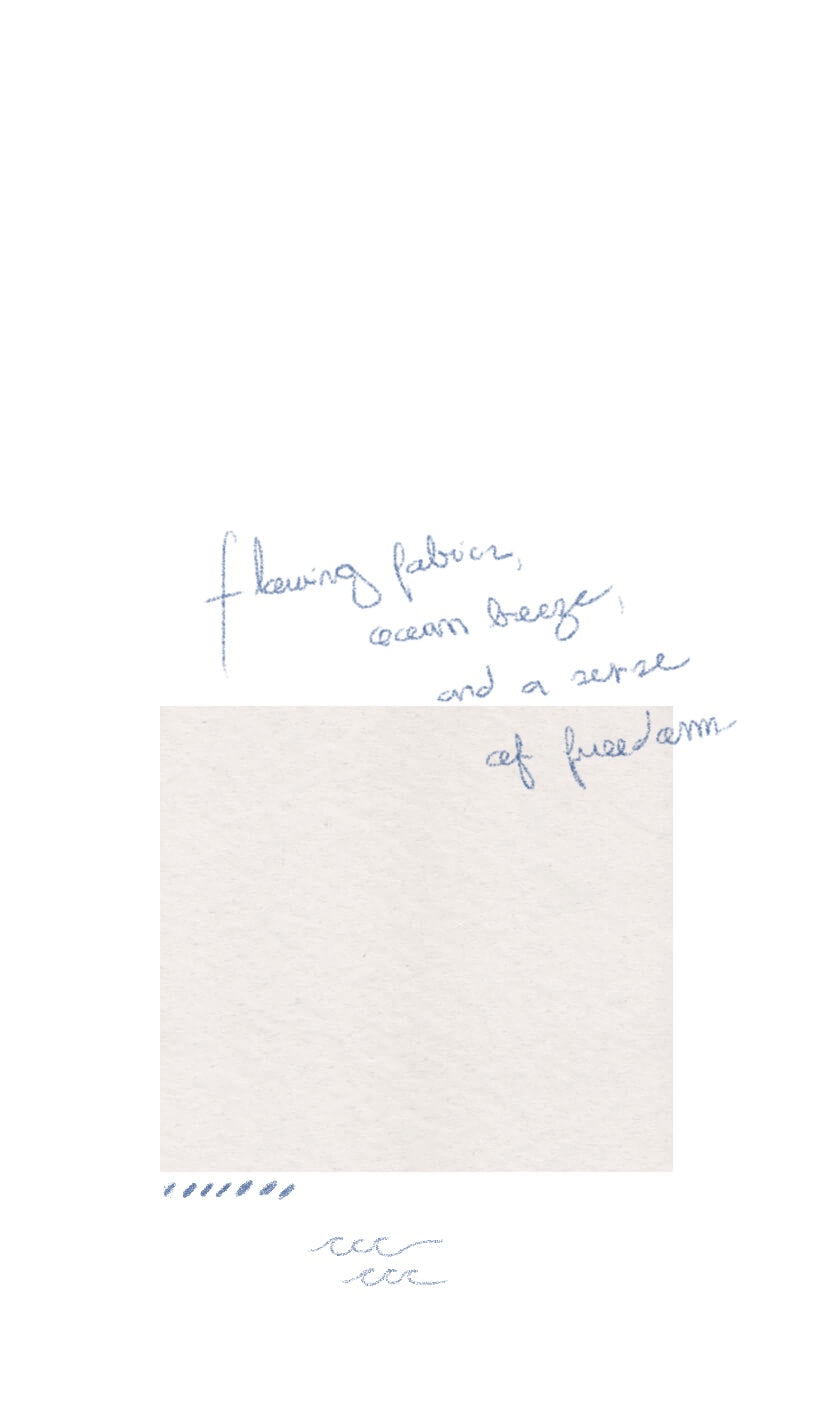 flowing fabrics,
ocean breeze,
and a sense
of freedom